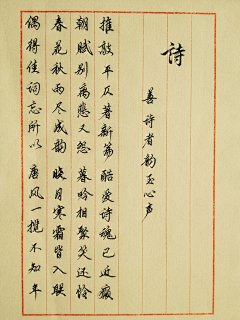 诗
善诗者韵至心声
推敲平仄著新篇 酷爱诗魂已近癫
朝赋别离愁又怨 暮吟相聚笑还怜
春花秋雨尽成韵 晓月寒霜皆入联
偶得佳词忘所以 唐风一揽不知年